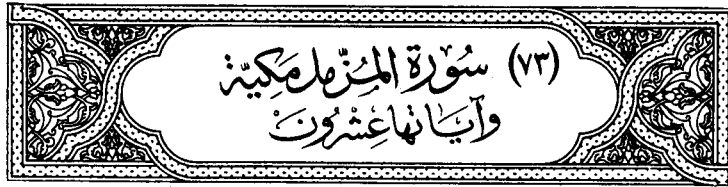 (٧٣) سُورَة المُزَّمِّل مَكيَّة
وَآيَاتهَا عِشْرُونَ